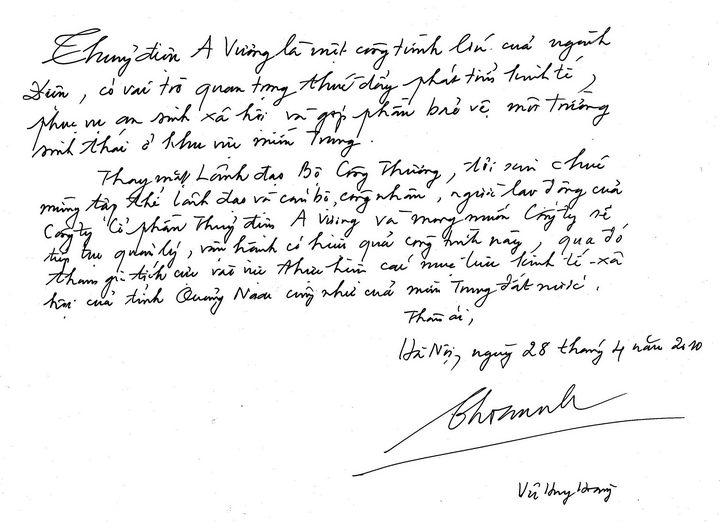 Thuỷ điện A Vương là một công trình lớn của ngành
Điện, có vai trò quan trọng thúc đẩy phát triển kinh tế,
phục vụ an sinh xã hội và góp phần bảo vệ môi trường
sinh thái ở khu vực miền Trung.
Thay mặt Lãnh đạo Bộ Công Thương, tôi xin chúc
mừng tập thể lãnh đạo và cán bộ, công nhân, người lao động của
Công ty Cổ phần Thuỷ điện A Vương và mong muốn Công ty sẽ
tiếp tục quản lý, vận hành có hiệu quả công trình này, qua đó
tham gia tích cực vào việc thực hiện các mục tiêu kinh tế - xã
hội của tỉnh Quảng Nam cũng như của miền Trung đất nước.
Thân ái,
Hà Nội, ngày 28 tháng 4 năm 2010
Vũ Huy Hoàng